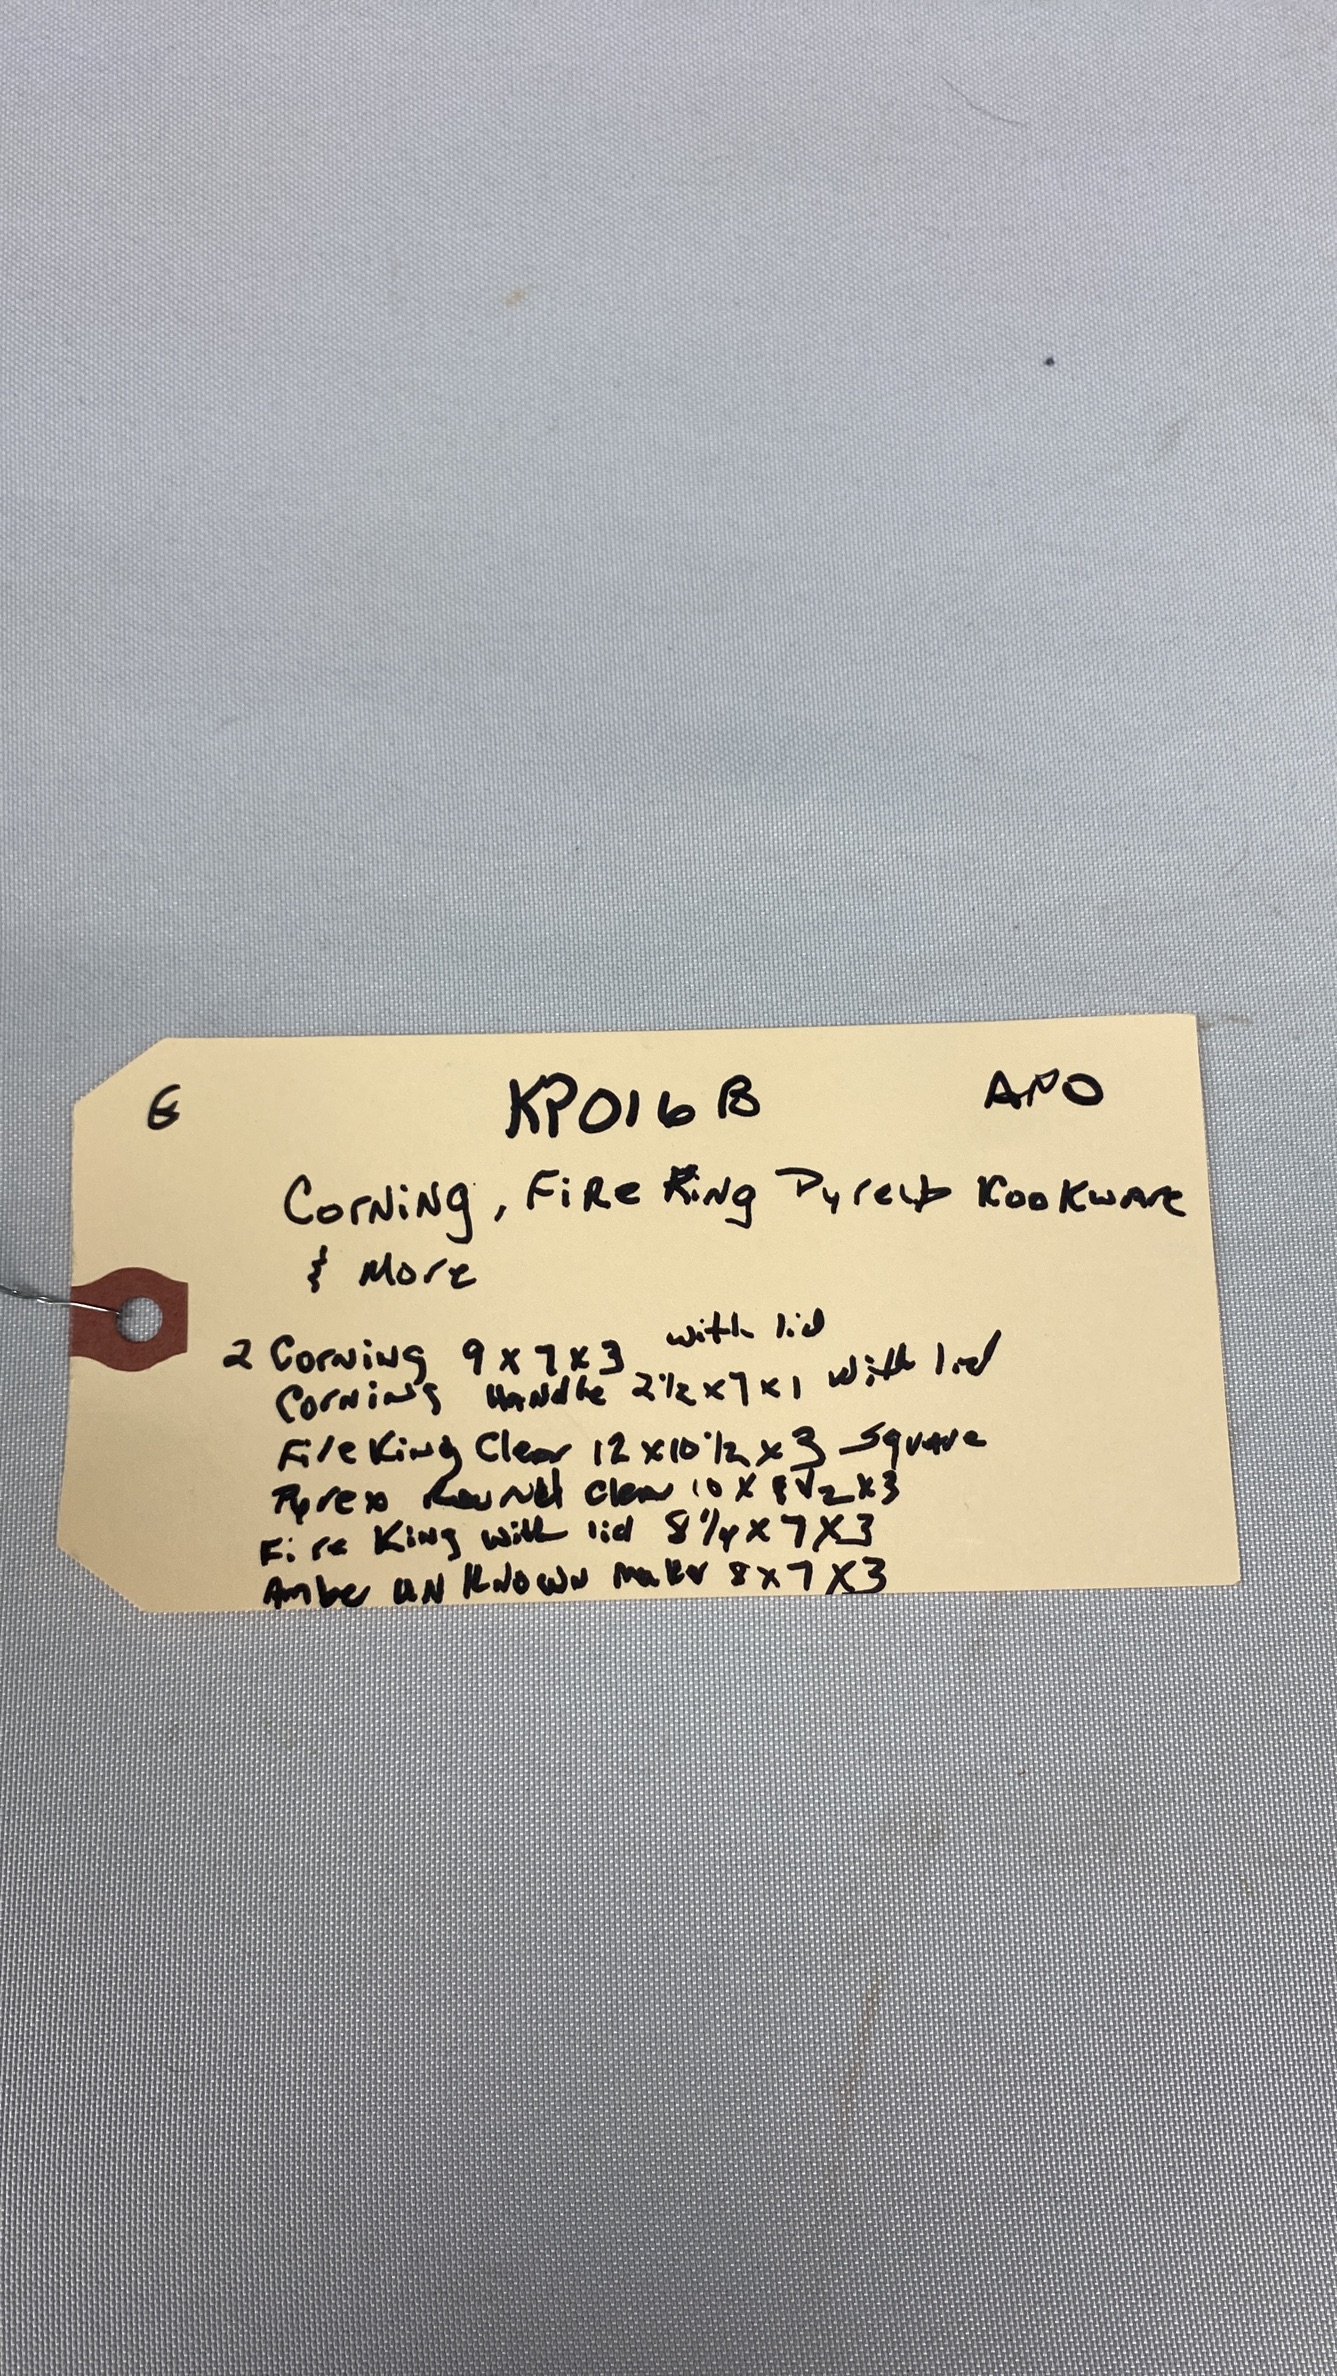 G KP016B APO
Corning, Fire King Pyrex Kookware
& More
2 Corning 9 x 7 x 3 with lid
Corning Handle 2 1/2 x 7 x 1 with lid
Fire King Clear 12 x 10 1/2 x 3 Square
Pyrex Round Clear 10 x 8 1/2 x 3
Fire King with lid 8 1/4 x 7 x 3
Amber UN KNOWN maker 8 x 7 x 3